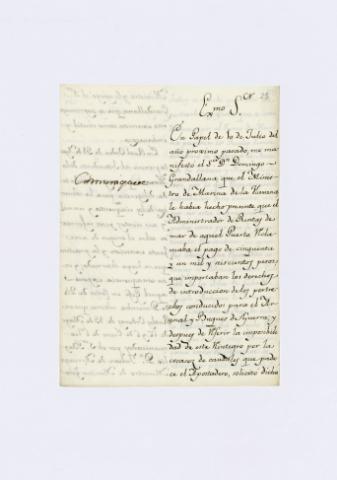 Exmo Sor
En Papel de 10 de Julio del
año proximo pasado, me ma-
nifestó el Sor Dn Domingo
Grandallana que el Minis-
tro de Marina de la Havana
le habia hecho presente que el
Administrador de Rentas de
mar de aquel Puerto recla-
maba el pago de cinquenta
y un mil y
que importaban los derechos
de introduccion de los pertre-
chos conducidos para el Ar-
senal y Buques de Guerra; y
despues de referir la imposibili-
dad de este Reintegro por la
escasez de caudales que pade-
ce el Apostadero, solicitó dicho